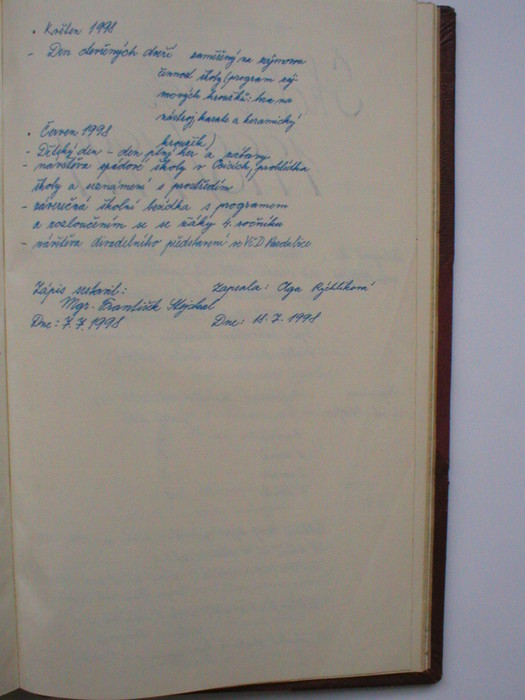 • Květen 1998
- Den otevřených dveří zaměřený na zájmovou
činnost školy (program zá-
jmových kroužků: hra na
nástroj, karate a keramický
kroužek)
• Červen 1998
- Dětský den - den plný her a zábavy
- návštěva spádové školy v Osicích, prohlídka
školy a seznámení s prostředím
- závěrečná školní besídka s programem
a rozloučením se se žáky 4. ročníku
- návštěva divadelního představení ve VČD Pardubice
Zápis schválil: Zapsala: Olga Rychlíková
Mgr. František Hejcral
Dne: 7. 7. 1998 Dne: 18. 7. 1998